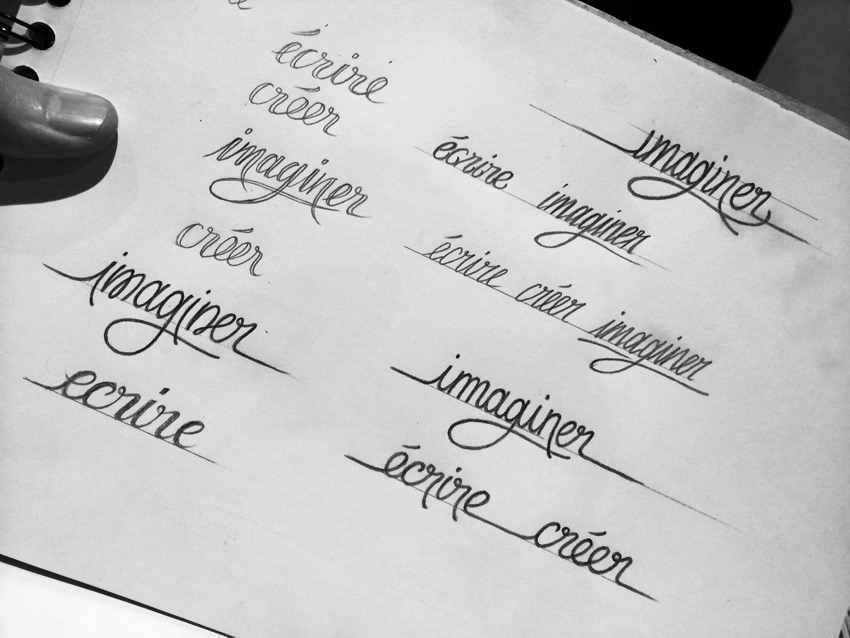 écrire
créer
imaginer
créer
imaginer
ecrire
imaginer
écrire imaginer
écrire créer imaginer
imaginer
écrire créer